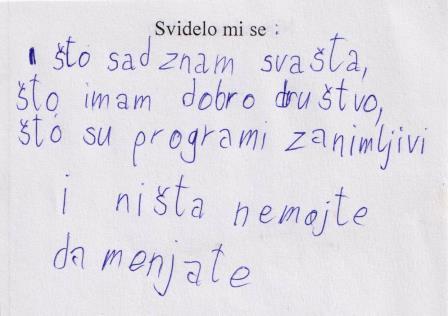 Svidelo mi se :
što sad znam svašta,
što imam dobro društvo,
što su programi zanimljivi
i ništa nemojte
da menjate